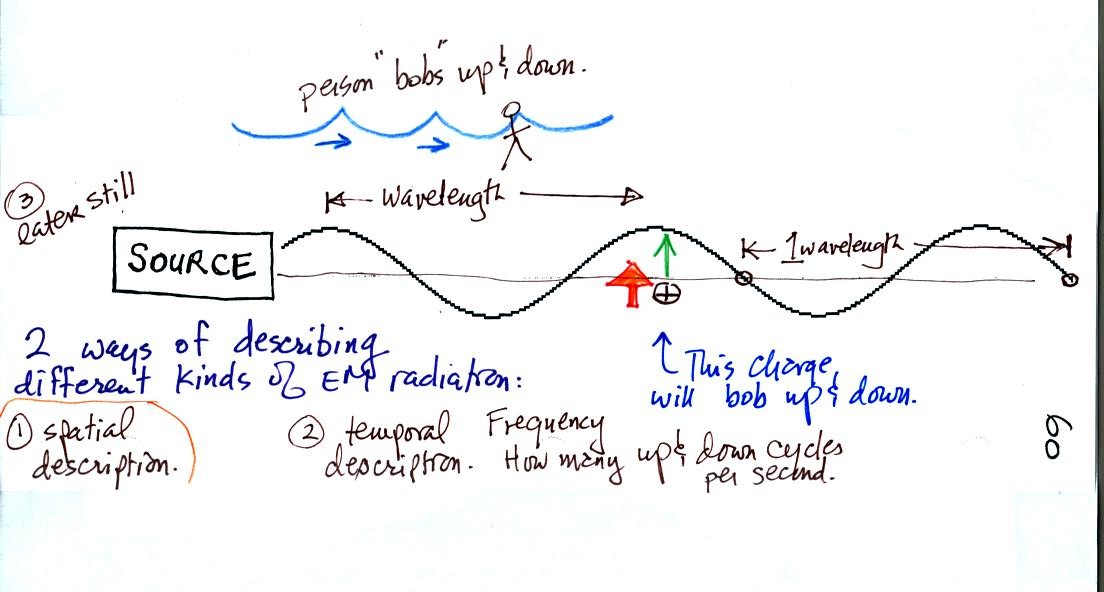 person "bobs" up & down.
③
later still
Wavelength
SOURCE
1 wavelength
2 ways of describing
different kinds of EM radiation:
This charge
will bob up & down.
① spatial
description.
② temporal
description.
Frequency
How many up & down cycles
per second.
60